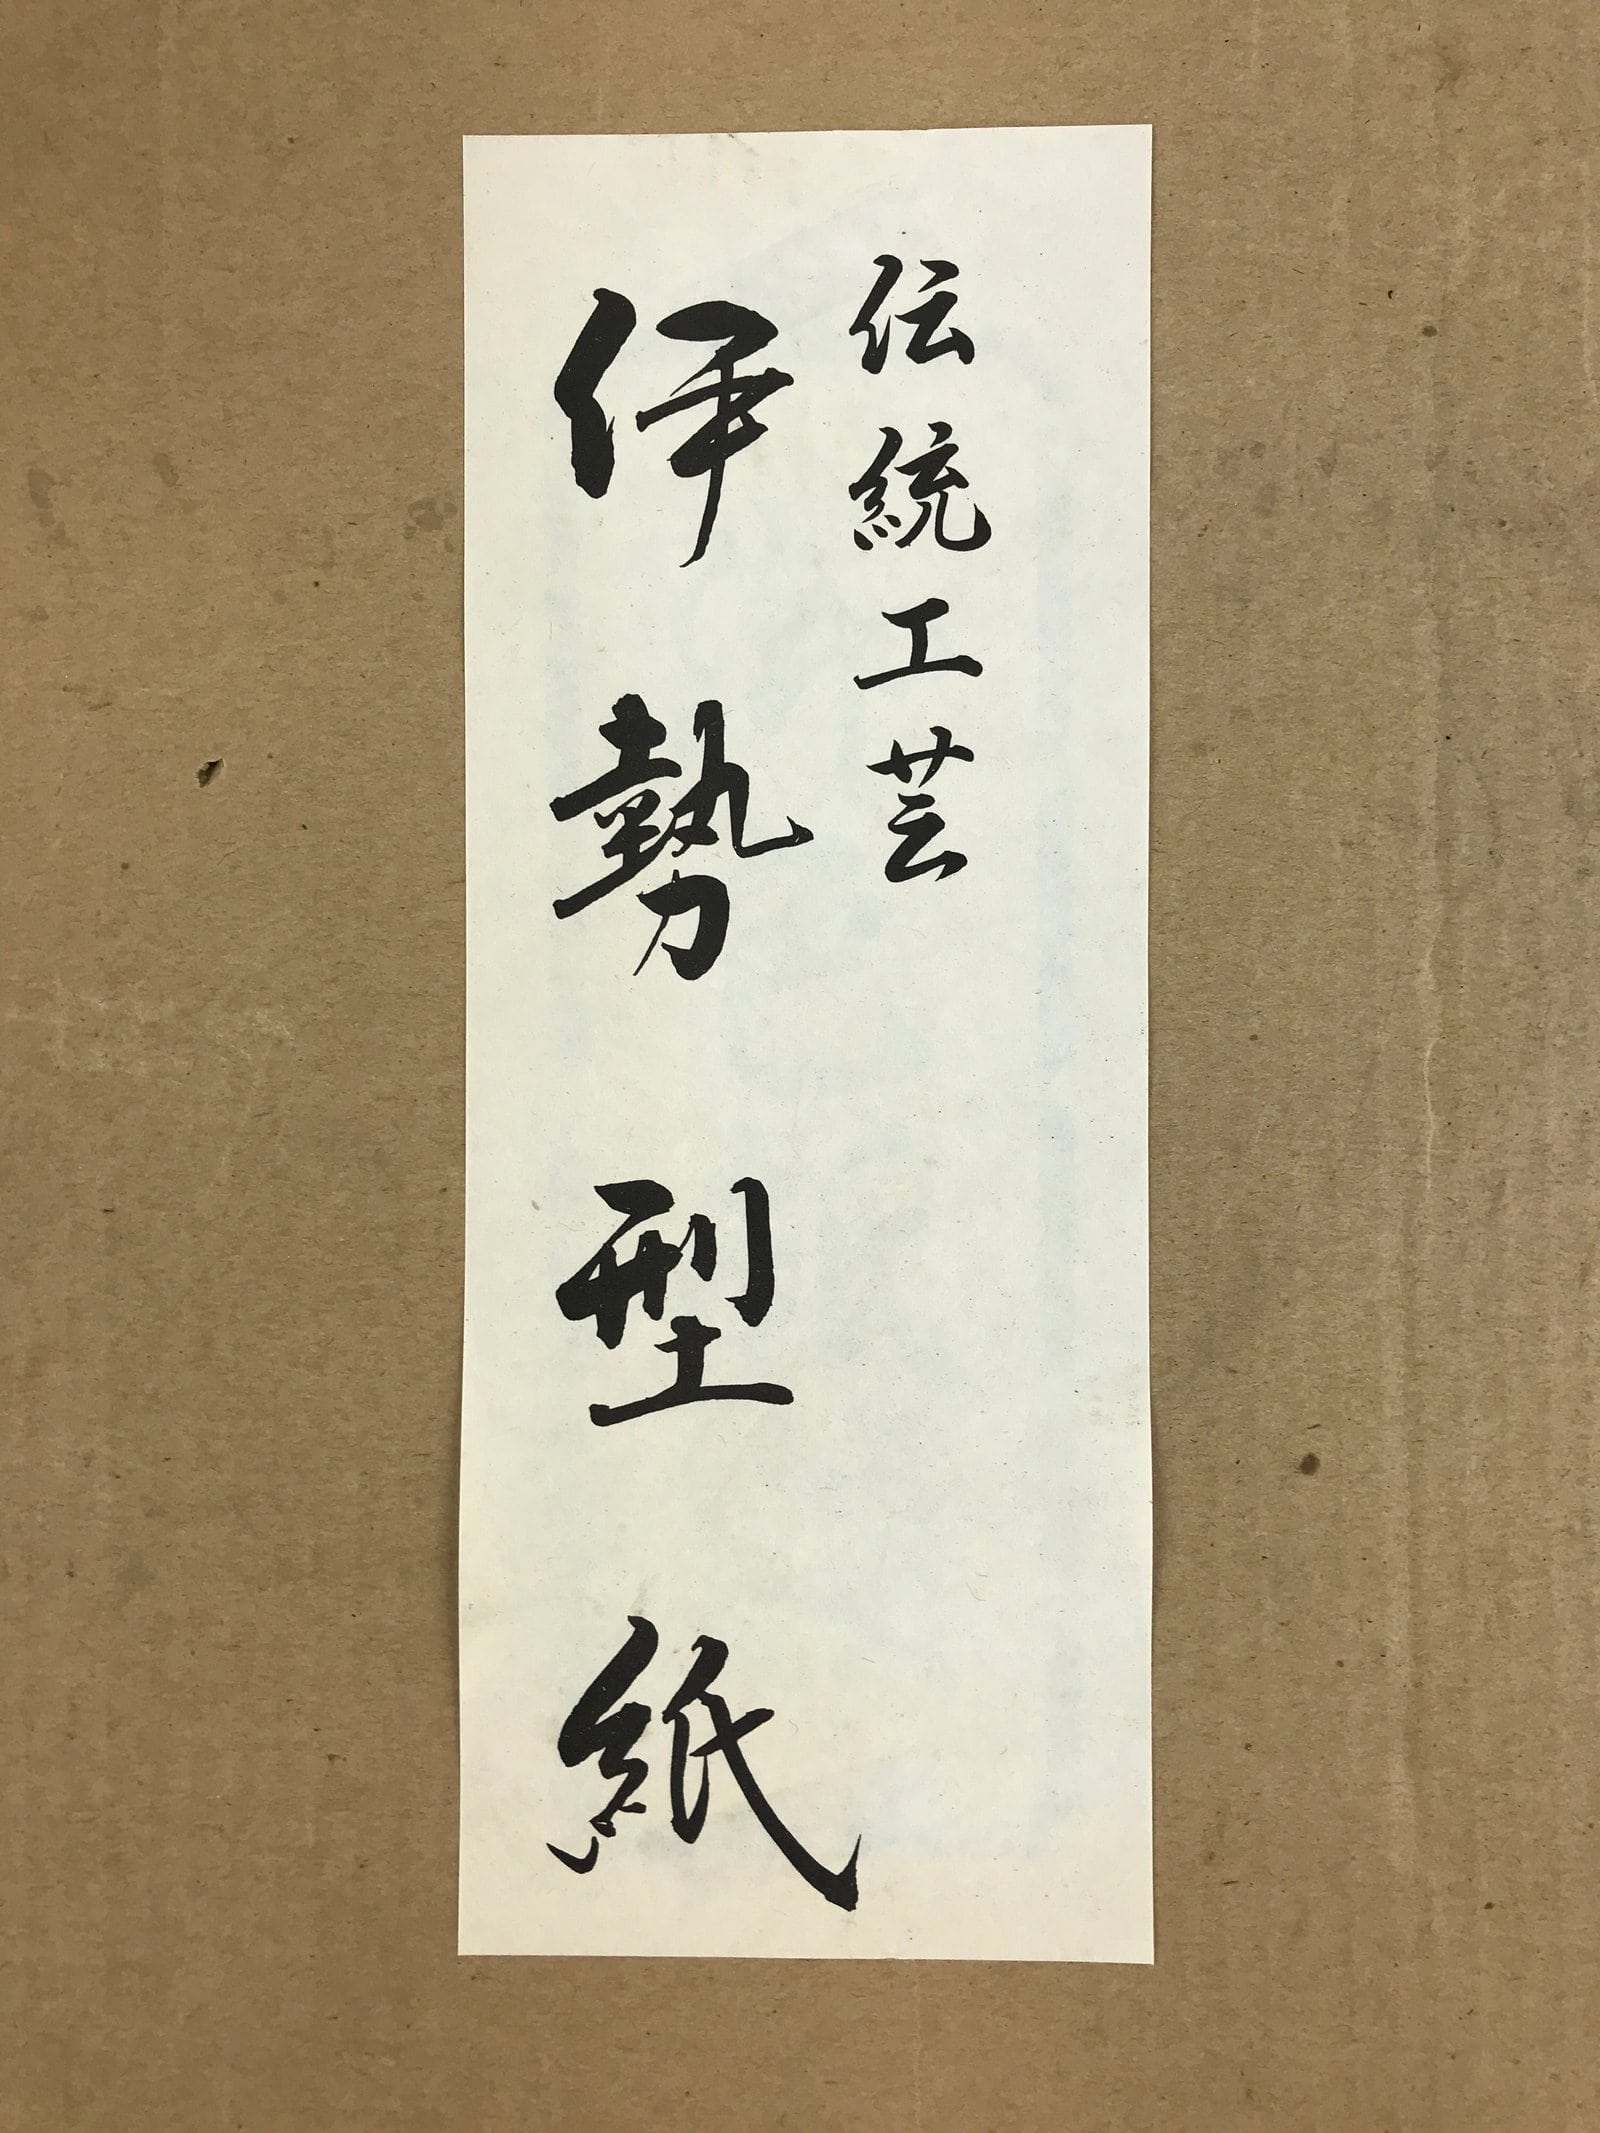 伝統工芸
伊勢型紙